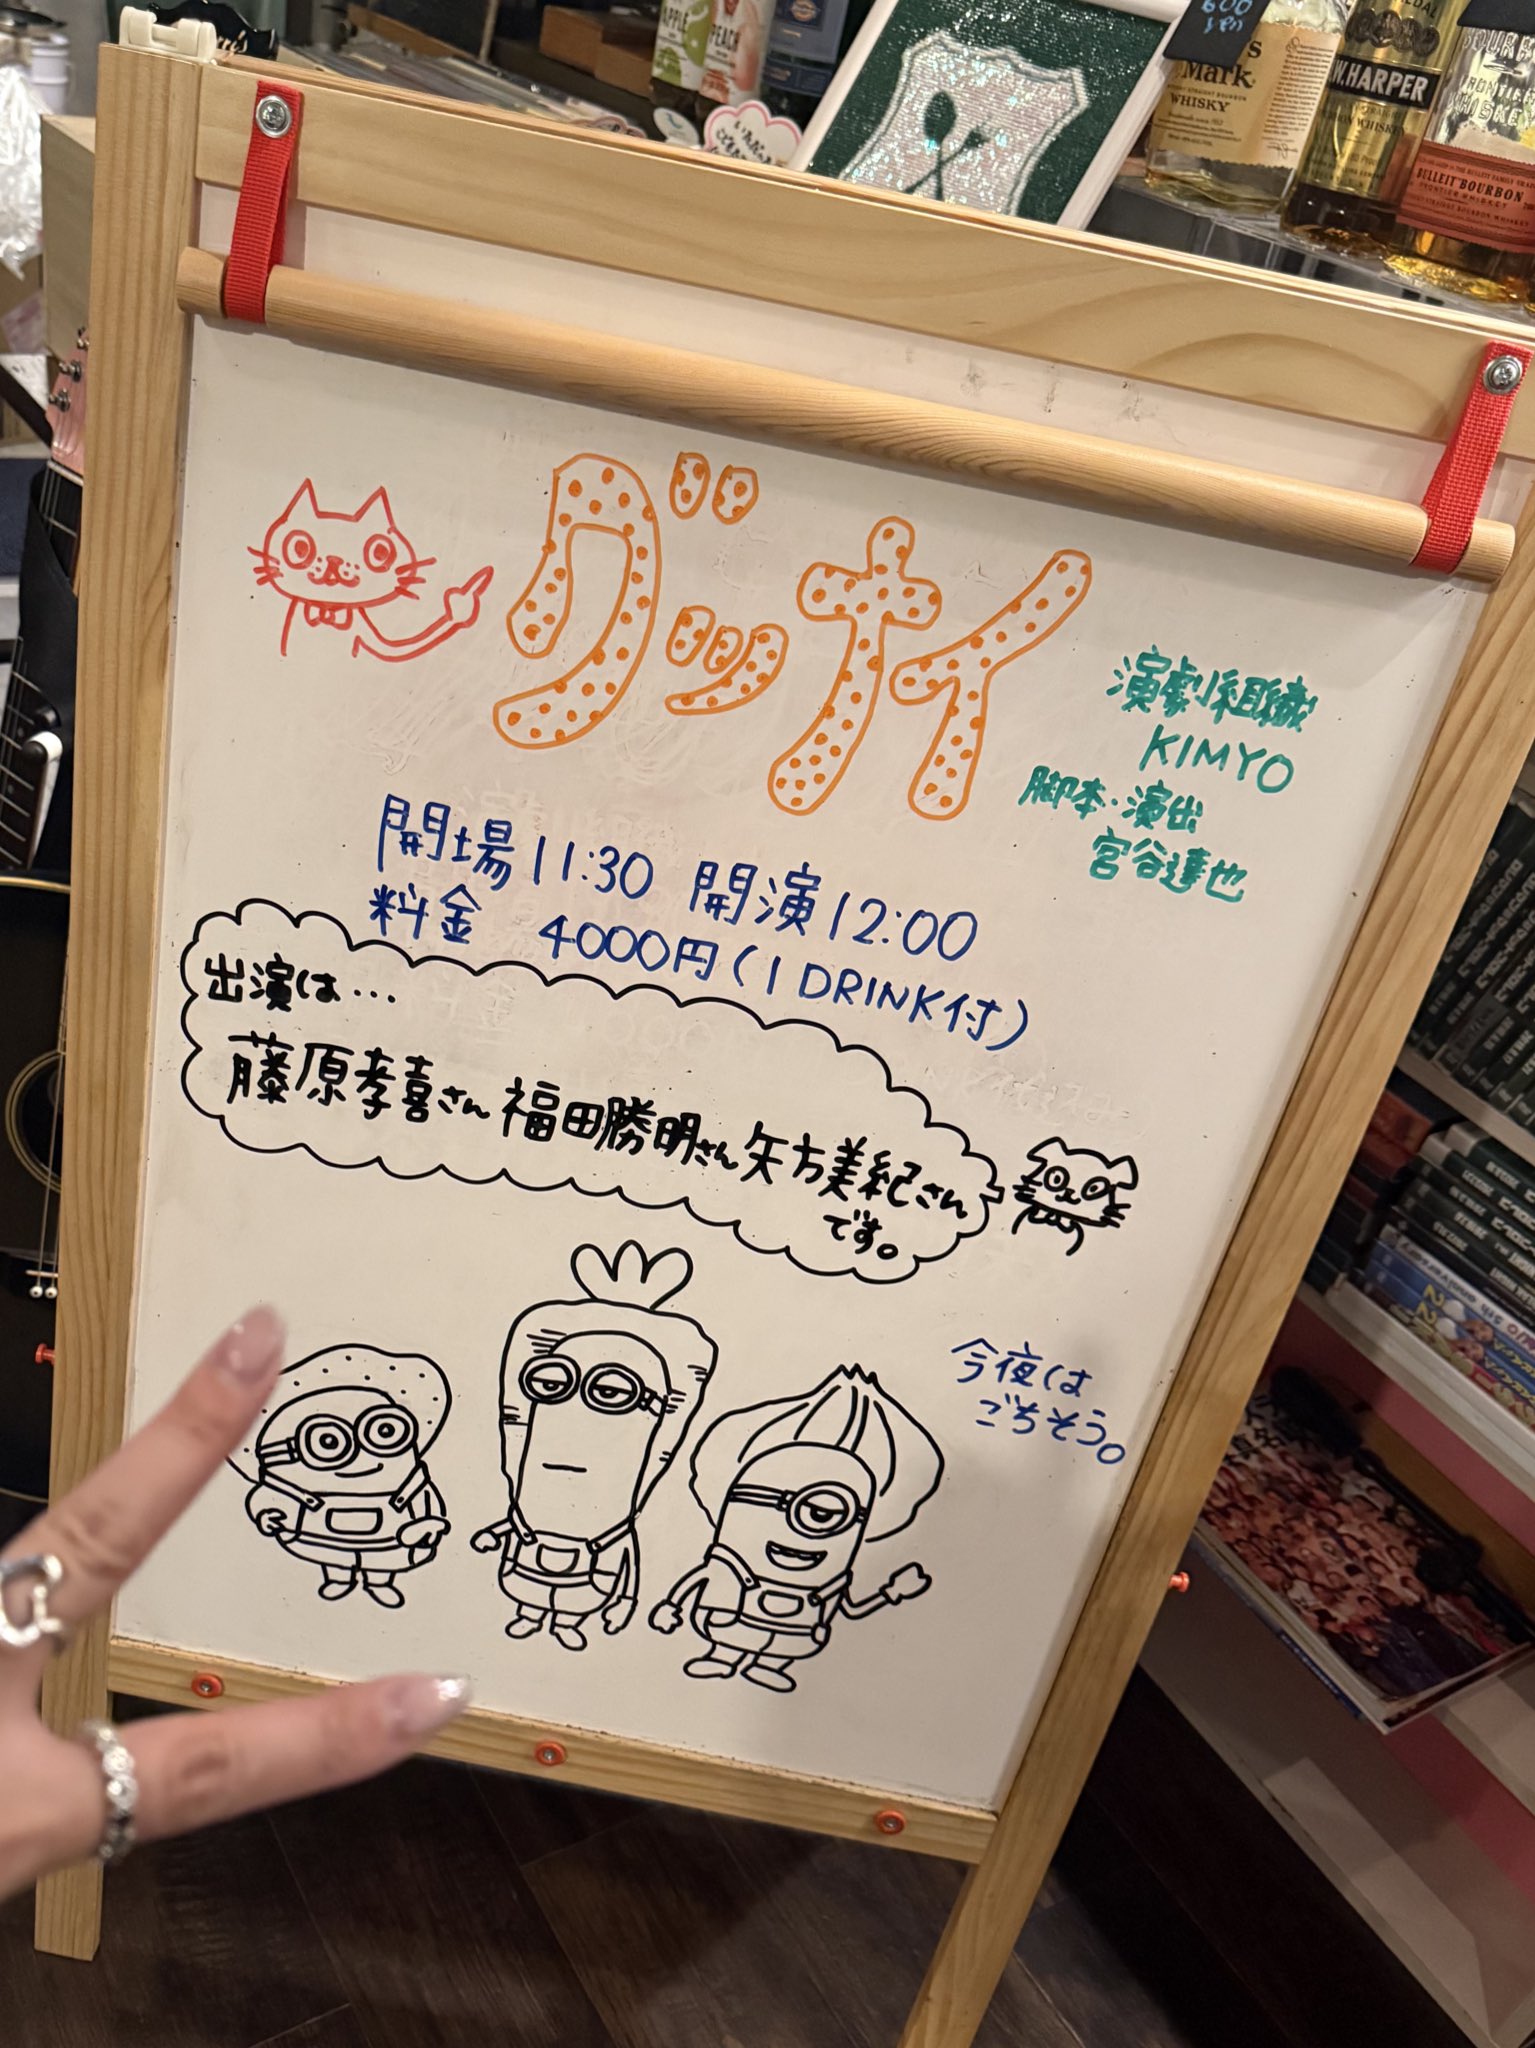 APPLE
PEACH
600
Mark
WHISKY
I.W.HARPER
BULLEIT BOURBON
FRONTIER WHISKEY
グッナイ
演劇組織
KIMYO
脚本・演出
宮谷達也
開場11:30 開演12:00
料金 4000円(1 DRINK付)
出演は...
藤原孝喜さん 福田勝明さん 矢方美紀さん
です。
今夜は
ごちそう。